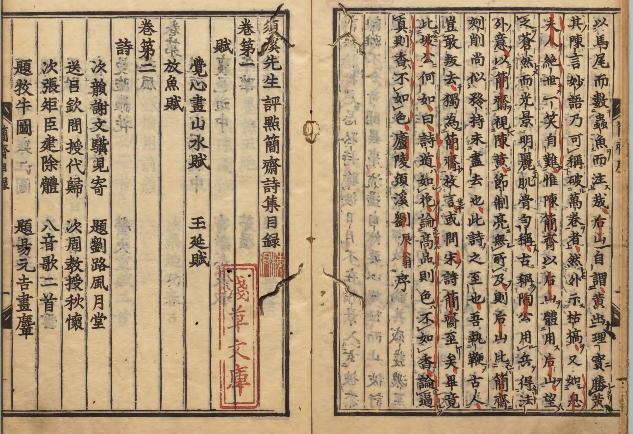 以馬尾而數蟲魚而注裁后山自謂黃出理實勝黃
其陳言妙語乃可稱破萬卷者然外示枯槁又如息
夫人絕世一笑自難惟陳簡齋以后山體用后山望
之蒼然而光景明麗肌骨勻稱古稱陶公用兵得法
外意以簡齋視陳黃節制亮無所不及則后山比簡齋
刻削尚似矜持未盡去也此詩之至也吾執鞭古人
豈敢叛去獨為簡齋故言或問宋詩簡齋至矣畢竟
比坡公何如曰詩道如花論高品則色不如香論逼
真則香不如色廬陵須溪劉辰翁序
須溪先生評點簡齋詩集目錄
卷第一
賦
覺心畫山水賦　玉延賦
放魚賦
卷第二
詩
次韻謝文驥見寄　題劉路風月堂
送呂欽問授代歸　次周教授秋懷
次張矩臣建除體　八音歌二首
題牧牛圖　題易元吉畫麞
簡齋目錄
淺草文庫